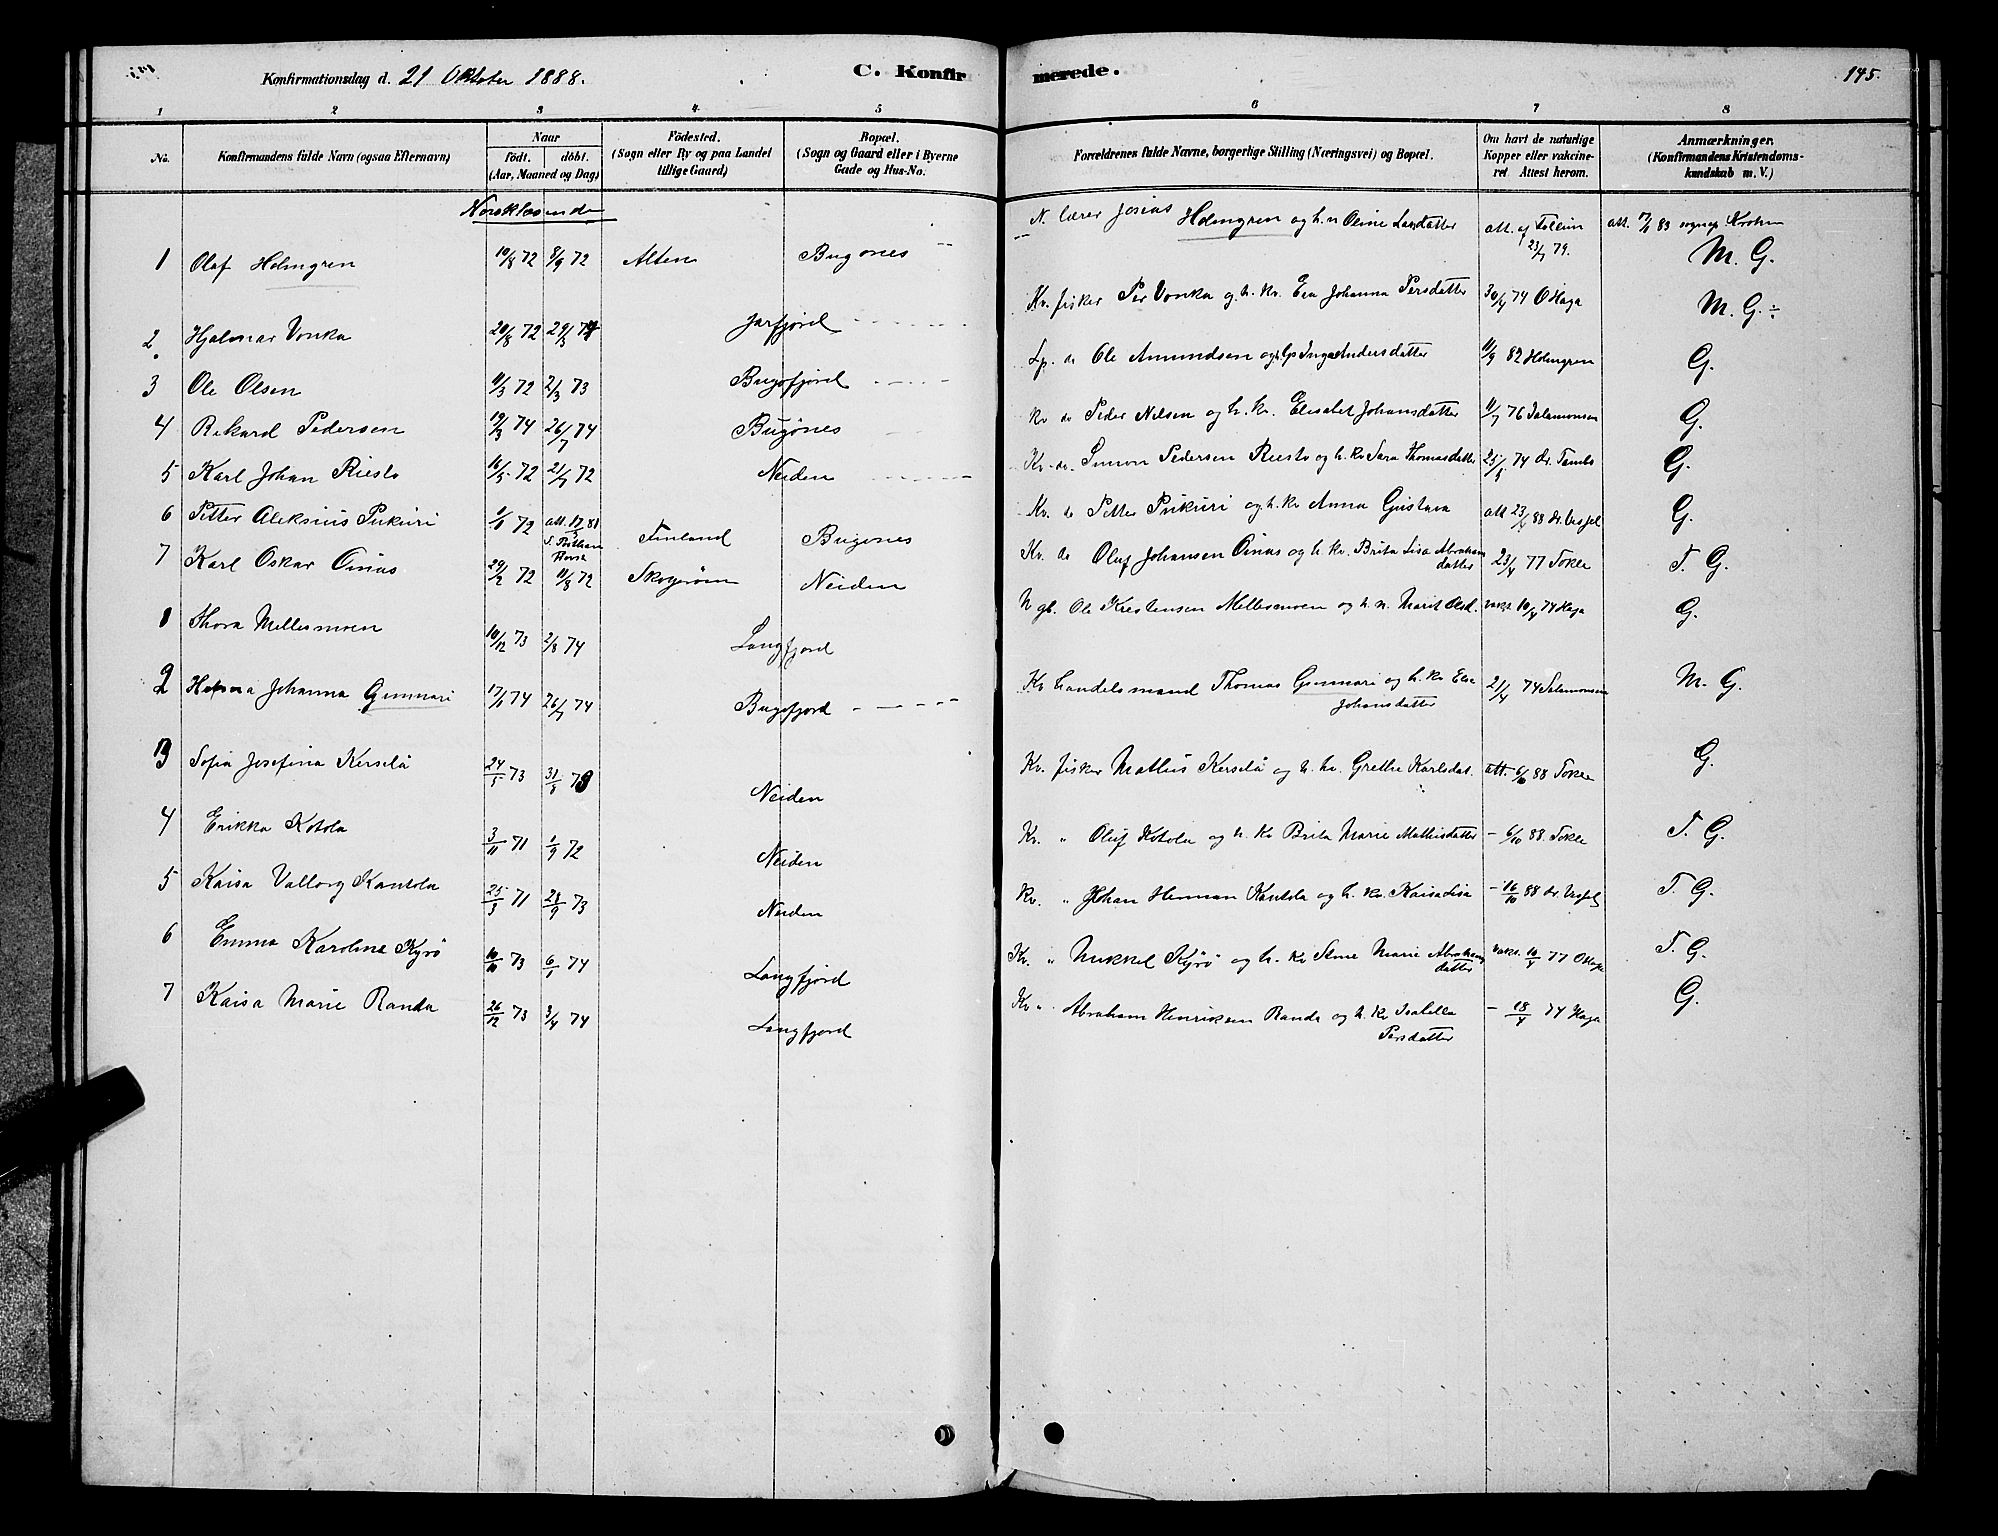 Konfirmationsdag d. 21 Oktober 1888.
C. Konfirmerede.
145.
1 2 3 4. 5 6 7 8
No.
Konfirmandens fulde Navn (ogsaa Efternavn)
Naar
födt. döbt.
(Aar, Maaned og Dag)
Födested.
(Sogn eller By og paa Landet
tillige Gaard)
Bopæl.
(Sogn og Gaard eller i Byerne
Gade og Hus-No.
Forældrenes fulde Navne, borgerlige Stilling (Næringsvei) og Bopæl.
Om havt de naturlige
Kopper eller vakcine-
ret Attest herom.
Anmærkninger.
(Konfirmandens Kristendoms-
kundskab m. V.)
Norsklæsende
1 Olaf Holmgren 10/8 72 8/9 72 Alten Bugönes N. lærer Josias Holmgren og h. n Oline Larsdatter att. af 23/7 79. att. 83 M. G.
2. Hjalmar Vonka 20/8 72 29/3 74 Jarfjord Kv. fisker Per Vonka og h. kv. Eva Johanna Persdatter 30/4 74 OHaga M. G. ÷
3 Ole Olsen 11/3 72 2/3 73 Bugöfjord Lp. do Ole Amundsen og lp Inga Andersdatter 11/9 82 Holmgren G.
4 Rikard Pedersen 19/3 74 26/7 74 Bugönes Kv do Peder Nilsen og h. kv. Elisabet Johansdatter 11/7 76 Salamonsen G.
5 Karl Johan Riesto 16/5 72 21/7 72 Neiden Kv. do. Simon Pedersen Riesto og h. kv Sara Thomasdatter 25/5 74 dr. Tambs G.
6 Petter Aleksius Pukuri 72 att. Finland Bugönes Kv. do Petter Pukuri og h. kv Anna Gustava att 88 dr. Vessel G.
7 Karl Oskar Oinas 29/2 72 11/8 72 Skogerøen Neiden Kv. do Oluf Johansen Oinas og h. kv. Brita Lisa Abraham
datter 23/4 77 Tokle T. G.
1 Thora Mellesmoen 10/12 73 2/8 74 Langfjord N gb. Ole Kristensen Mellesmoen og h. n. Marit Olsd. vakc. 10/4 74 Haga G.
2 Helena Johanna Gunnari 17/1 74 26/7 74 Bugöfjord Kv handelsmand Thomas Gunnari og h. kv Eva
Johansdatter 21/4 74 Salamonsen M. G.
3 Sofia Josefina Kerselä 24/5 73 31/8 73 Neiden Kv. fisker Mathis Kerselä og h. kv. Grethe Karlsdat. att. 6/10 88 Tokle G.
4 Erikka Kotola 3/11 71 1/9 72 Neiden Kv. " Oluf Kotola og h. kv Brita Marie Mathisdatter - 6/10 88. Tokle T. G.
5 Kaisa Valborg Kantola 25/3 71 28/9 73 Neiden Kv. " Johan Herman Kantola og h. kv. Kaisa Lisa - 16/10 88 dr. Vessel T. G.
6 Emma Karoline Kyrö 10/10 73 6/1 74 Langfjord Kv. " Mikkel Kyrö og h. kv Stine Marie Abrahams
datter vakc. 10/4 77 OHaga T. G.
7 Kaisa Marie Randa 26/12 73 3/4 74 Langfjord Kv " Abraham Henriksen Randa og h. kv Isabella
Persdatter - 18/4 74 Haga G.